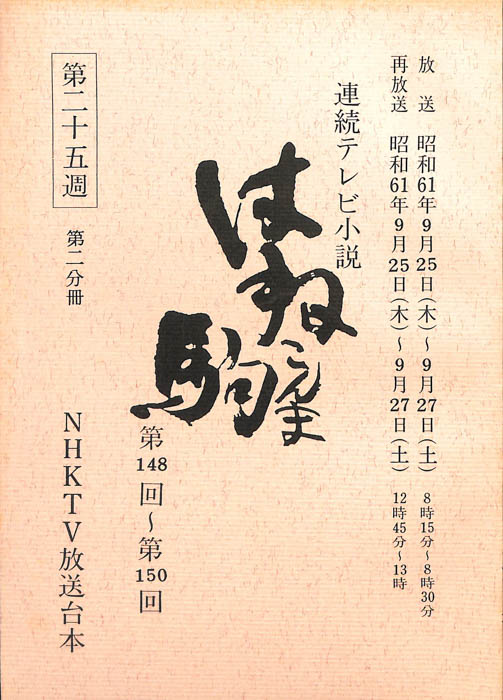 放送 昭和61年9月25日(木)~9月27日(土) 8時15分~8時30分
再放送 昭和61年9月25日(木)~9月27日(土) 12時45分~13時
連続テレビ小説
はね駒
こんま
第148回~第150回
第二十五週
第二分冊
NHKTV放送台本